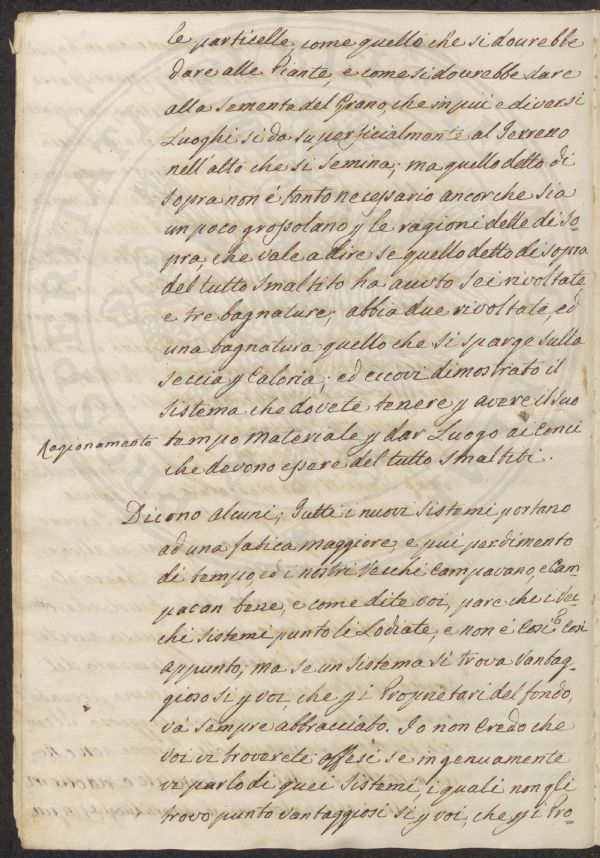 le particelle, come quello che si dourebbe
dare alle Piante, e come si dourebbe dare
alla sementa del Grano, che in più e diversi
Luoghi si da superficialmente al Terreno
nell'atto che si semina; ma quello detto di
sopra non é tanto necessario ancorche sia
un poco grossolano p le ragioni dette di so-
pra, che vale a dire se quello detto di sopra
del tutto smaltito ha auuto sei rivoltate,
e tre bagnature; abbia due rivoltate, ed
una bagnatura quello che si sparge sulla
seccia p Caloria; ed eccovi dimostrato il
sistema che dovete tenere p avere il suo
Ragionamento
tempo materiale p dar Luogo ai Conci
che devono essere del tutto smaltiti.
Dicono alcuni; Tutti i nuovi sistemi portano
ad una fatica maggiore, e piú perdimento
di tempo, ed i nostri Vecchi Campavano, e Cam-
pacan bene, e come dite voi, pare che i Vec-
chi sistemi punto li Lodiate, e non é Cosi? Cosi
appunto, ma se un sistema si trova Vantag-
gioso si p voi, che p i Proprietari del fondo,
vá sempre abbracciato. Io non Credo che
voi vi troverete offesi se ingenuamente
vi parlo di quei sistemi, i quali non gli
trovo punto vantaggiosi si p voi, che p i Pro-